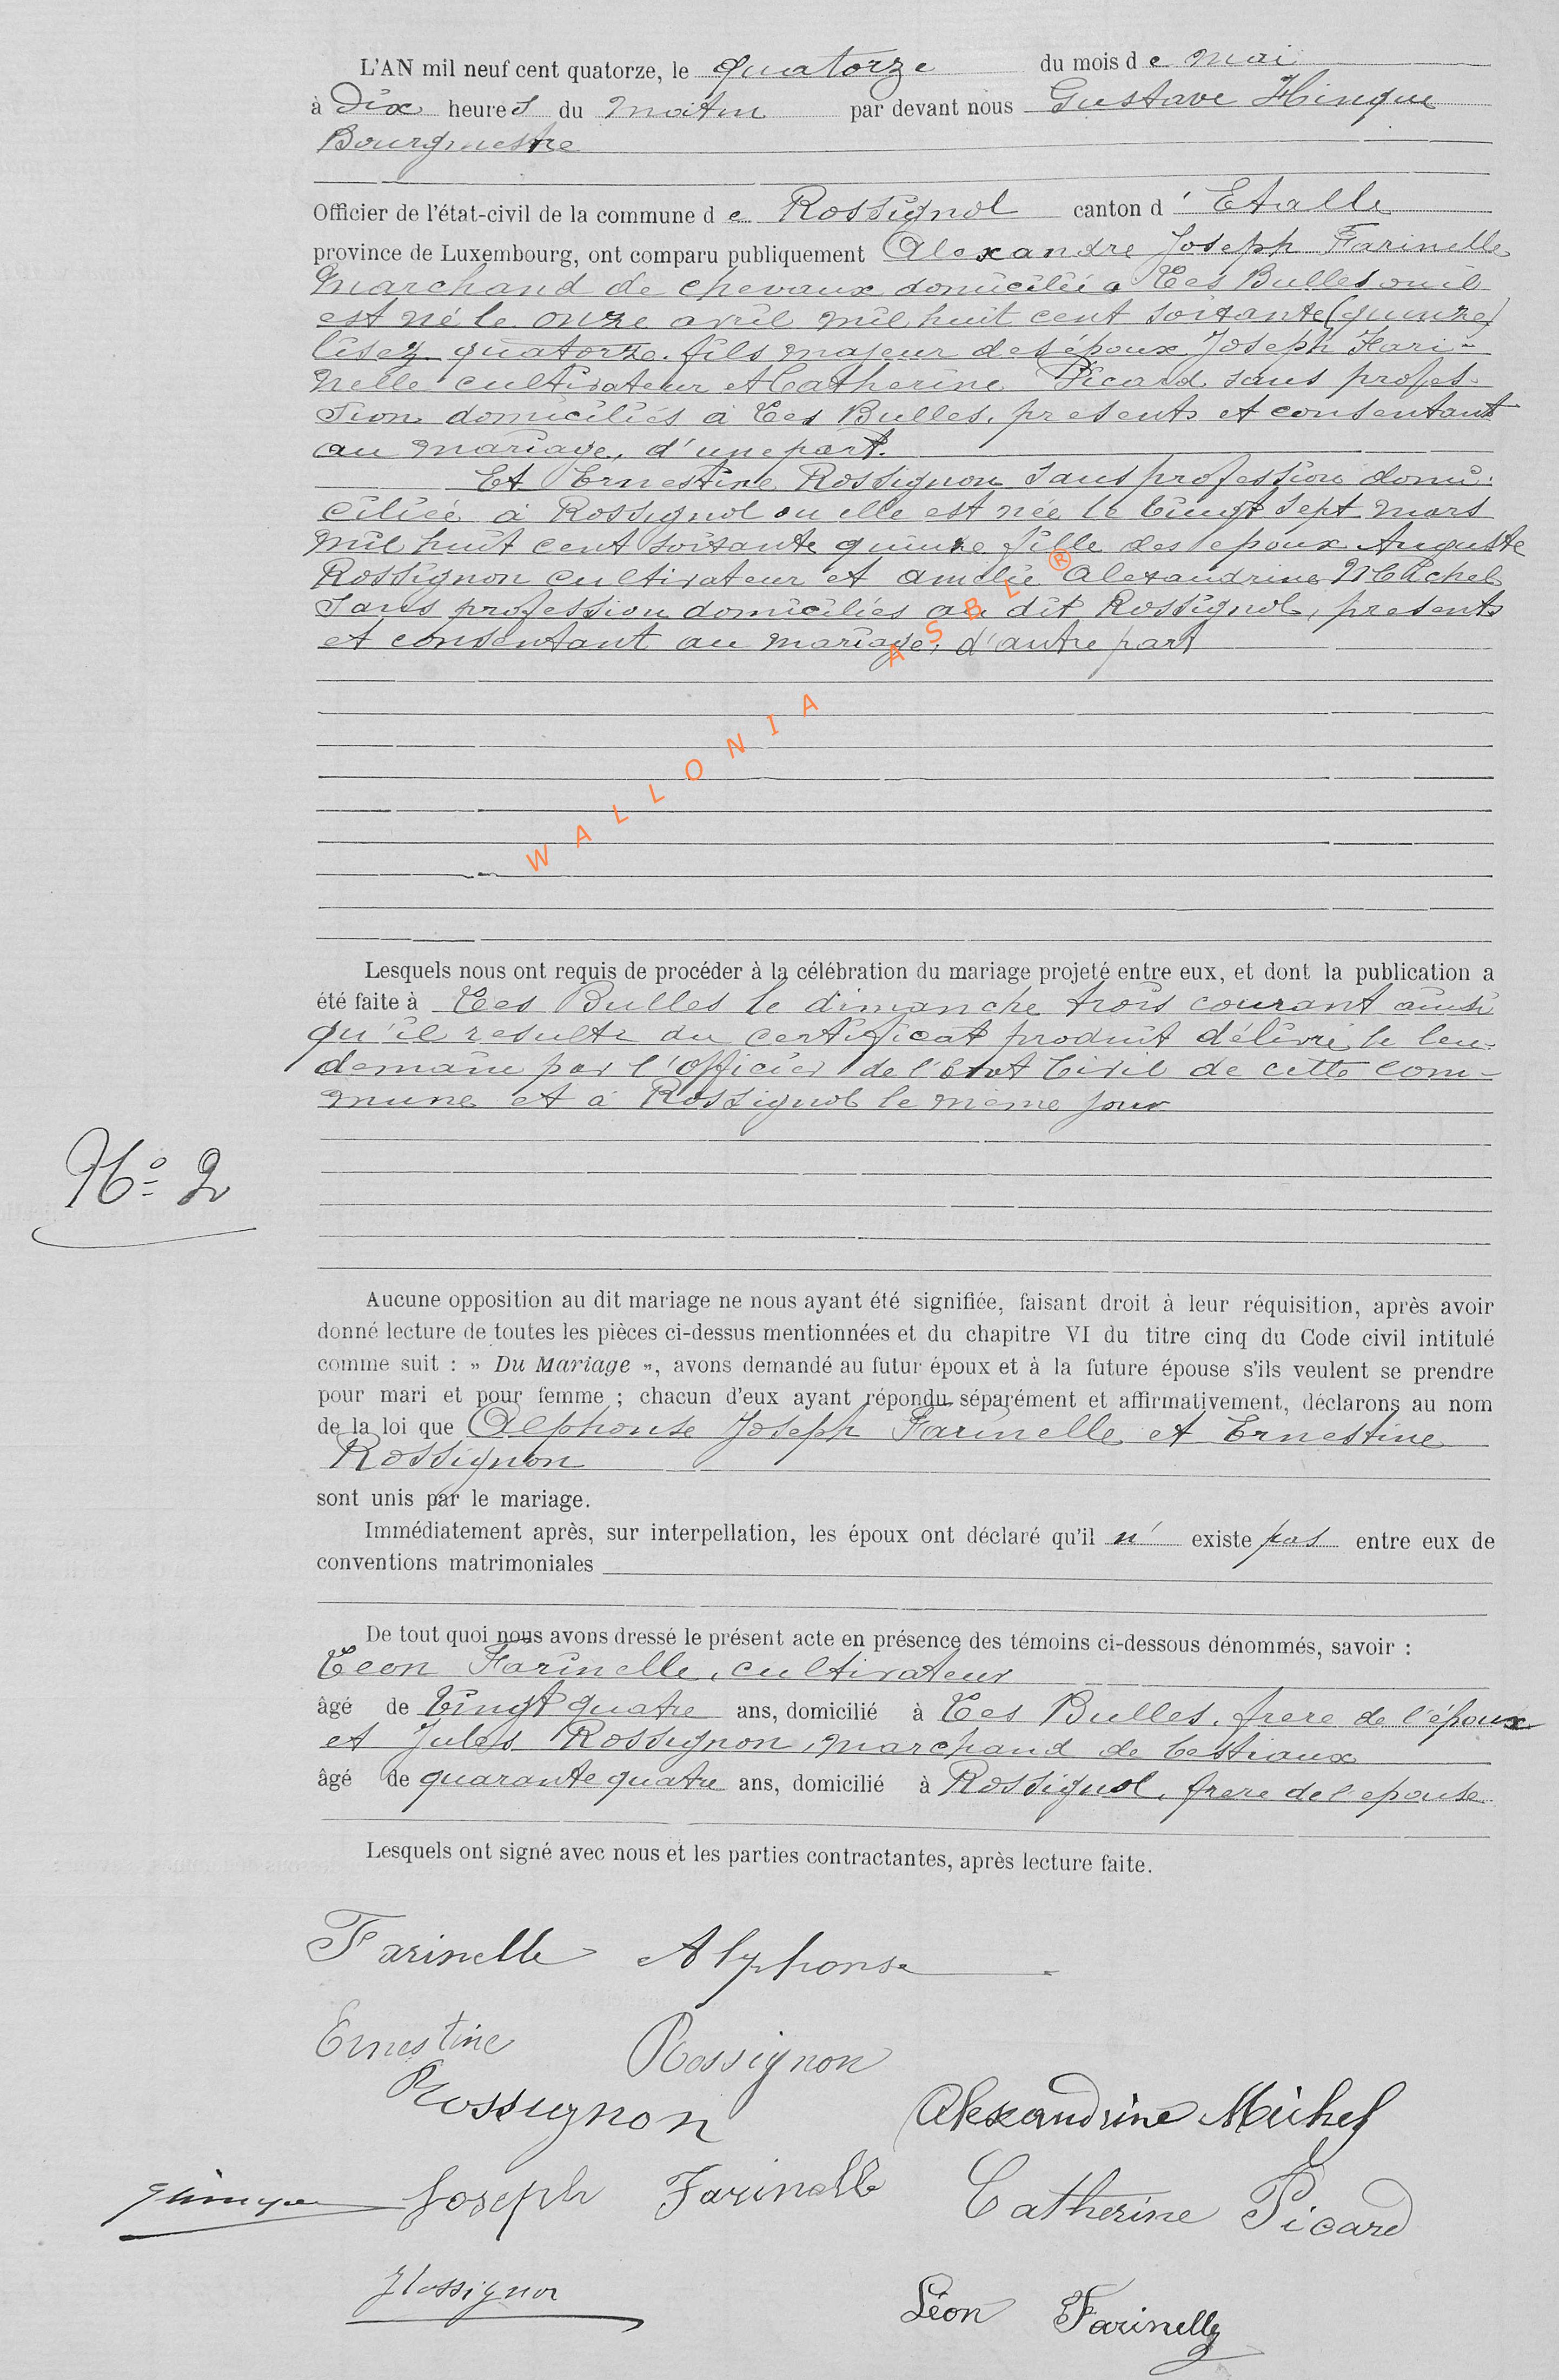 L'AN mil neuf cent quatorze, le quatorze du mois de mai
à Dix heures du matin par devant nous Gustave Hinque
Bourgmestre
Officier de l'état-civil de la commune de Rossignol canton d' Etalle
province de Luxembourg, ont comparu publiquement Alexandre Joseph Farinelle
Marchand de chevaux domicilié à Les Bulles ou il
est né le onze avril mil huit cent soixante (quinze)
lisez quatorze. fils majeur des époux Joseph Fari-
nelle cultivateur et Catherine Picard sans profes-
sion domiciliés à Les Bulles, presents et consentant
au mariage, d'une part.
Et Ernestine Rossignon sans profession domi-
ciliée à Rossignol ou elle est née le vingt sept mars
mil huit cent soixante quinze fille des epoux Auguste
Rossignon cultivateur et amelie Alexandrine Michel
sans profession domiciliés au dit Rossignol, presents
et consentant au mariage, d'autre part
WALLONIA ASBL ®
Lesquels nous ont requis de procéder à la célébration du mariage projeté entre eux, et dont la publication a
été faite à Les Bulles le dimanche trois courant ainsi
qu'il resulte du certificat produit délivré le len-
demain par l'officier de l'état Civil de cette com-
mune et à Rossignol le même jour
No 2
Aucune opposition au dit mariage ne nous ayant été signifiée, faisant droit à leur réquisition, après avoir
donné lecture de toutes les pièces ci-dessus mentionnées et du chapitre VI du titre cinq du Code civil intitulé
comme suit : » Du Mariage », avons demandé au futur époux et à la future épouse s'ils veulent se prendre
pour mari et pour femme ; chacun d'eux ayant répondu séparément et affirmativement, déclarons au nom
de la loi que Alphonse Joseph Farinelle et Ernestine
Rossignon
sont unis par le mariage.
Immédiatement après, sur interpellation, les époux ont déclaré qu'il n' existe pas entre eux de
conventions matrimoniales
De tout quoi nous avons dressé le présent acte en présence des témoins ci-dessous dénommés, savoir :
Leon Farinelle, cultivateur
âgé de vingt quatre ans, domicilié à Les Bulles, frere de l'époux
et Jules Rossignon, marchand de bestiaux
âgé de quarante quatre ans, domicilié à Rossignol, frere de l'epouse
Lesquels ont signé avec nous et les parties contractantes, après lecture faite.
Farinelle Alphonse
Ernestine Rossignon
Rossignon Alexandrine Michel
Hinque Joseph Farinelle Catherine Picard
JRossignon Léon Farinelle